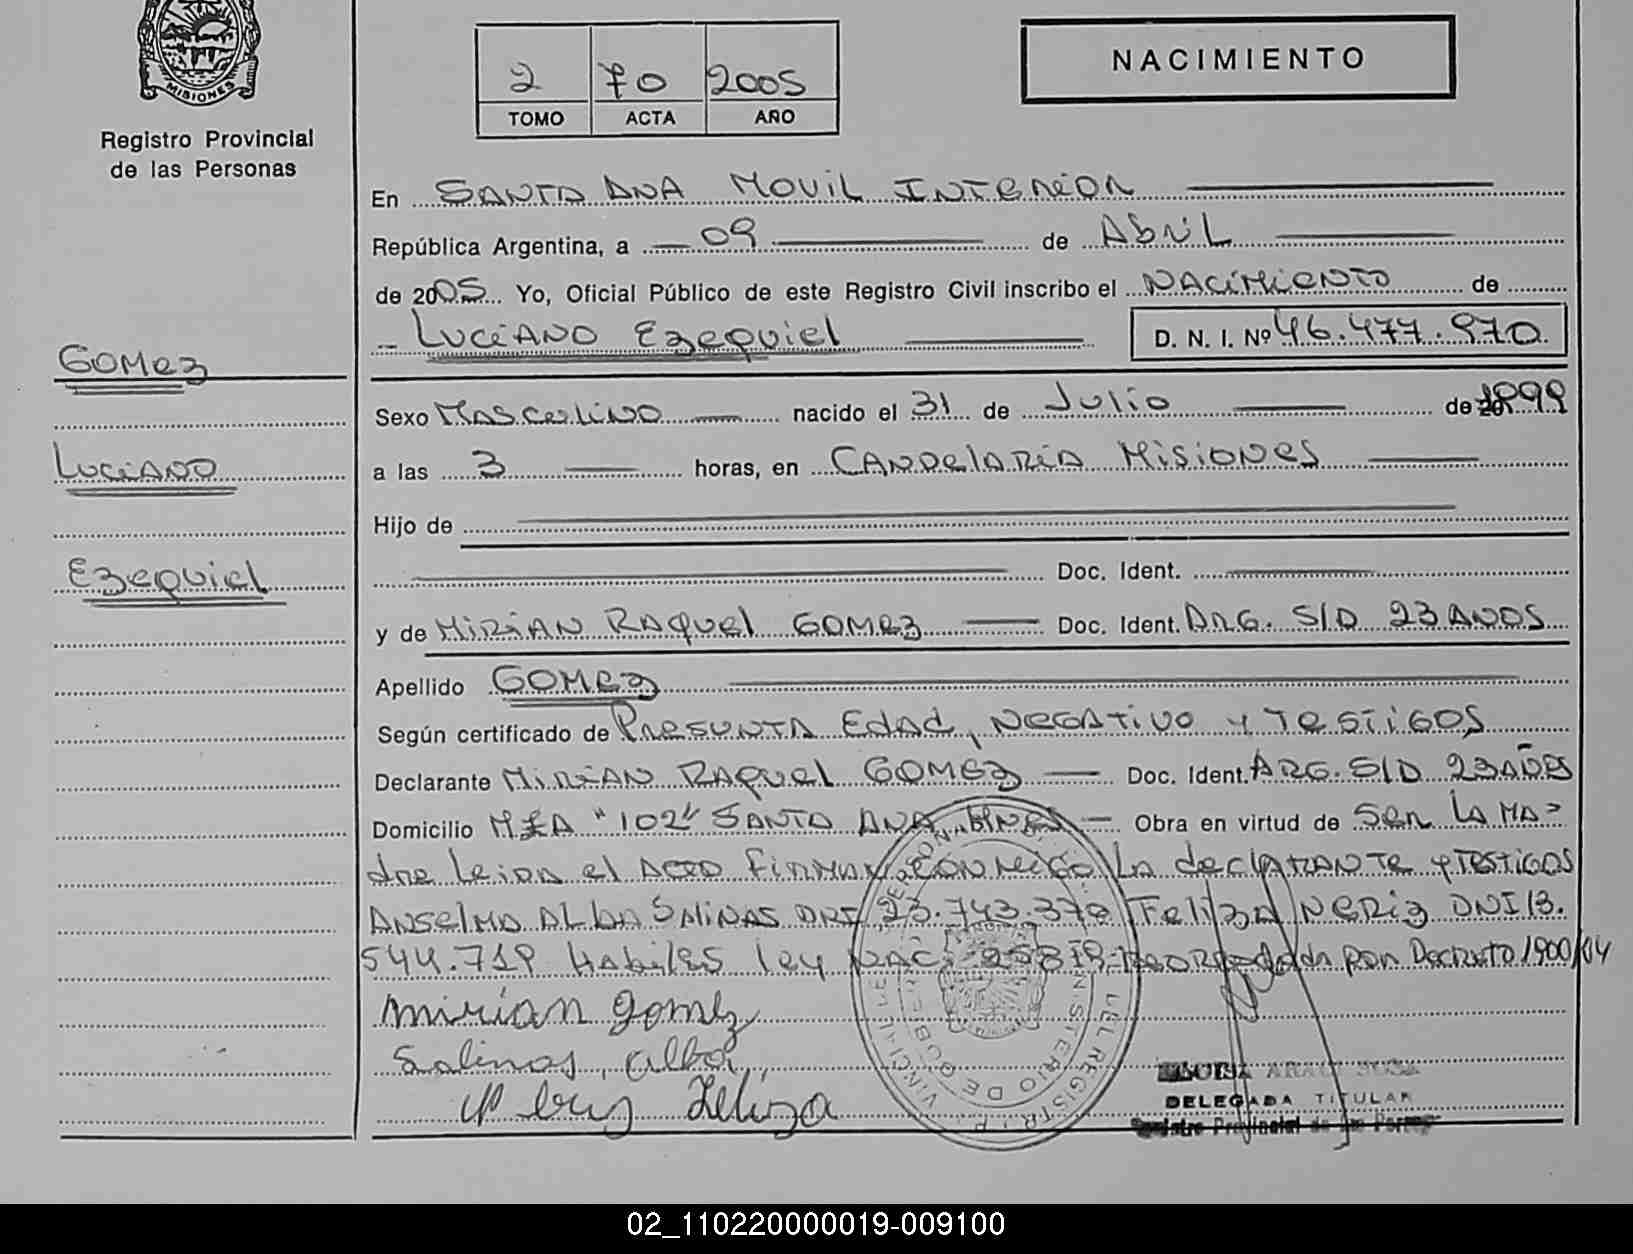 MISIONES
Registro Provincial
de las Personas
2 70 2005
TOMO ACTA AÑO
NACIMIENTO
En SANTA ANA MOVIL INTERIOR
República Argentina, a 09 de Abril
de 2005 Yo, Oficial Público de este Registro Civil inscribo el NACIMIENTO de
LUCIANO EZEQUIEL D. N. I. Nº 46.477.970
GOMEZ
Sexo MASCULINO nacido el 31 de JULIO de 1999
LUCIANO
a las 3 horas, en CANDELARIA MISIONES
Hijo de
EZEQUIEL
Doc. Ident.
y de MIRIAN RAQUEL GOMEZ Doc. Ident. ARG. S/D 23 ANOS
Apellido GOMEZ
Según certificado de PRESUNTA EDAD, NEGATIVO Y TESTIGOS
Declarante MIRIAN RAQUEL GOMEZ Doc. Ident. ARG. S/D 23 AÑOS
Domicilio MZA "102" SANTA ANA MNES Obra en virtud de SER LA MA=
dre leida el ACTO FIRMAN CON MIGO LA declARANTE y TESTIGOS
ANSELMA ALBA SALINAS DNI 23.743.379 Feliza NERIZ DNI 13.
544.719 Habiles ley NAC. por Decreto 1900/04
mirian gomez
Salinas, alba
Neriz Feliza
DELEGADA TITULAR
Registro Provincial de las Personas
02_110220000019-009100